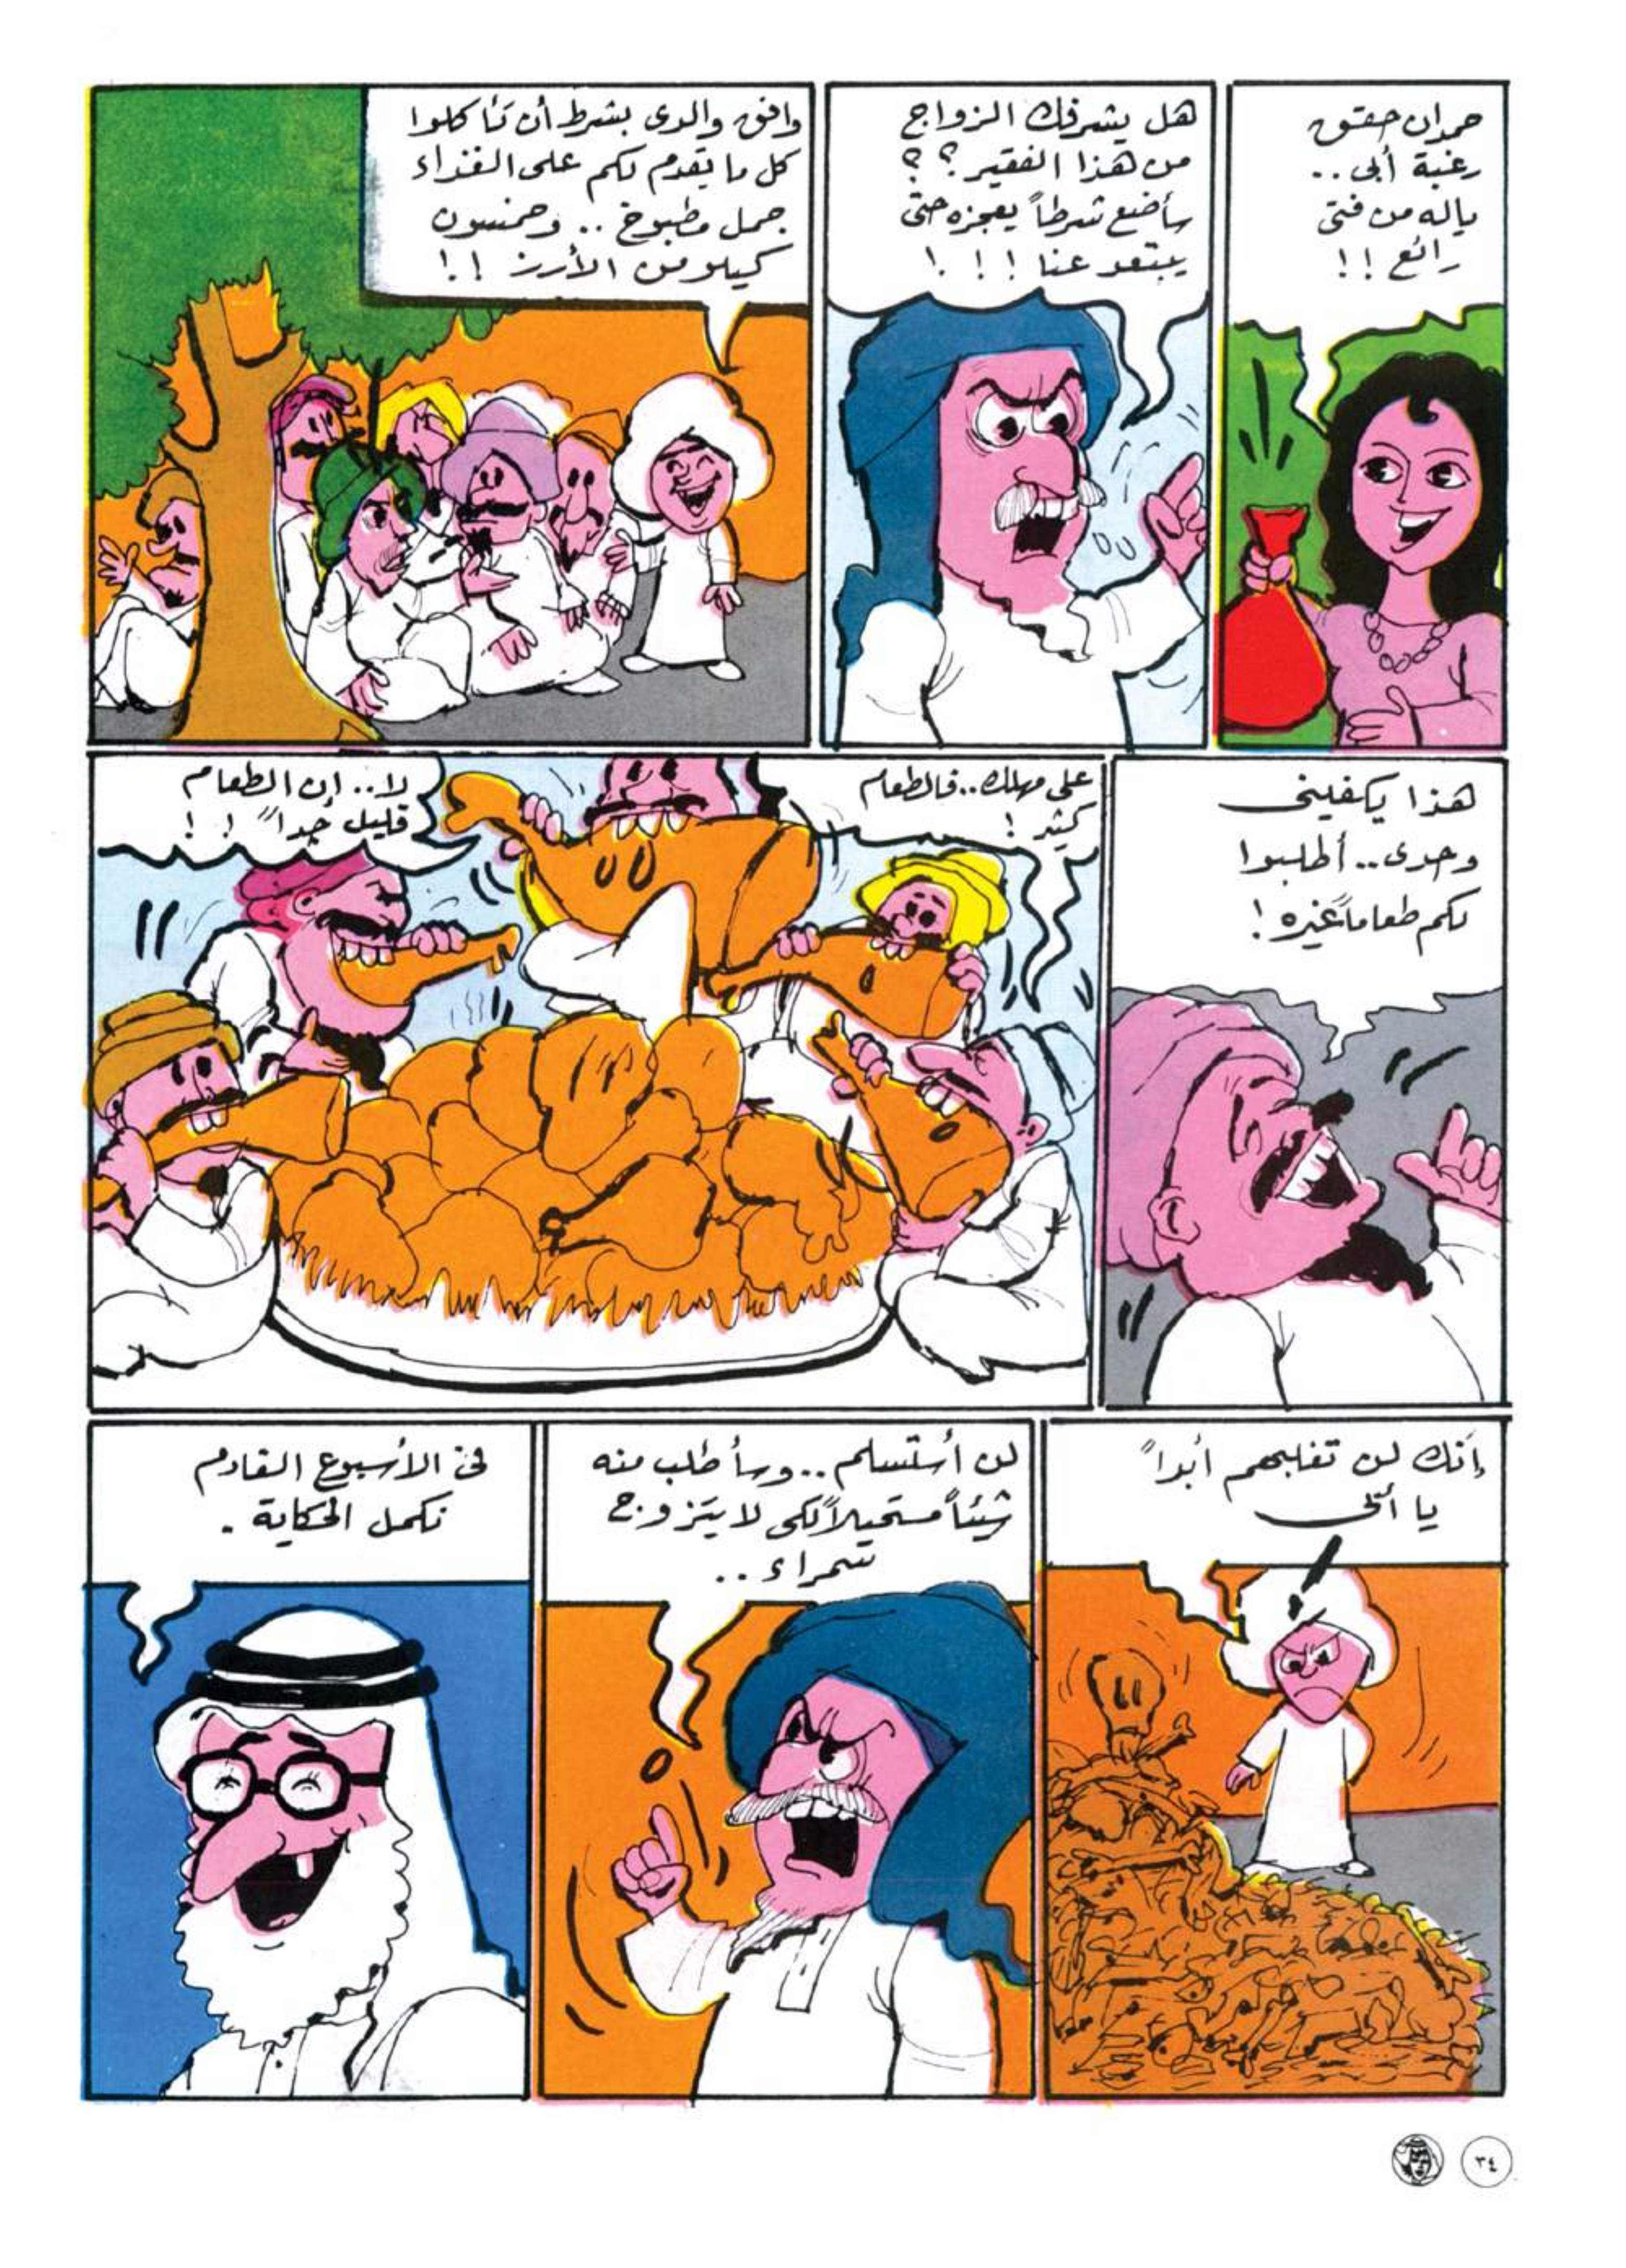 حمدان حقق
رغبة أبى ..
ياله من فتى
رائع !!
هل يشرفك الزواج
من هذا الفقير ؟ ؟
سأضع شرطاً يعجزه حتى
يبتعد عنا ! ! !
وافق والدى بشرط أن تأكلوا
كل ما يقدم لكم على الغداء
جمل مطبوخ .. وخمسون
كيلو من الأرز !!
هذا يكفينى
وحدى .. أطلبوا
لكم طعاماً غيره !
على مهلك .. فالطعام
كثير !
لا .. إن الطعام
قليل جداً ! !
إنك لن تغلبهم أبداً
يا أبى
لن أستسلم .. وسأطلب منه
شيئاً مستحيلاً لكى لا يتزوج
سمراء ..
فى الأسبوع القادم
نكمل الحكاية .
٣٤